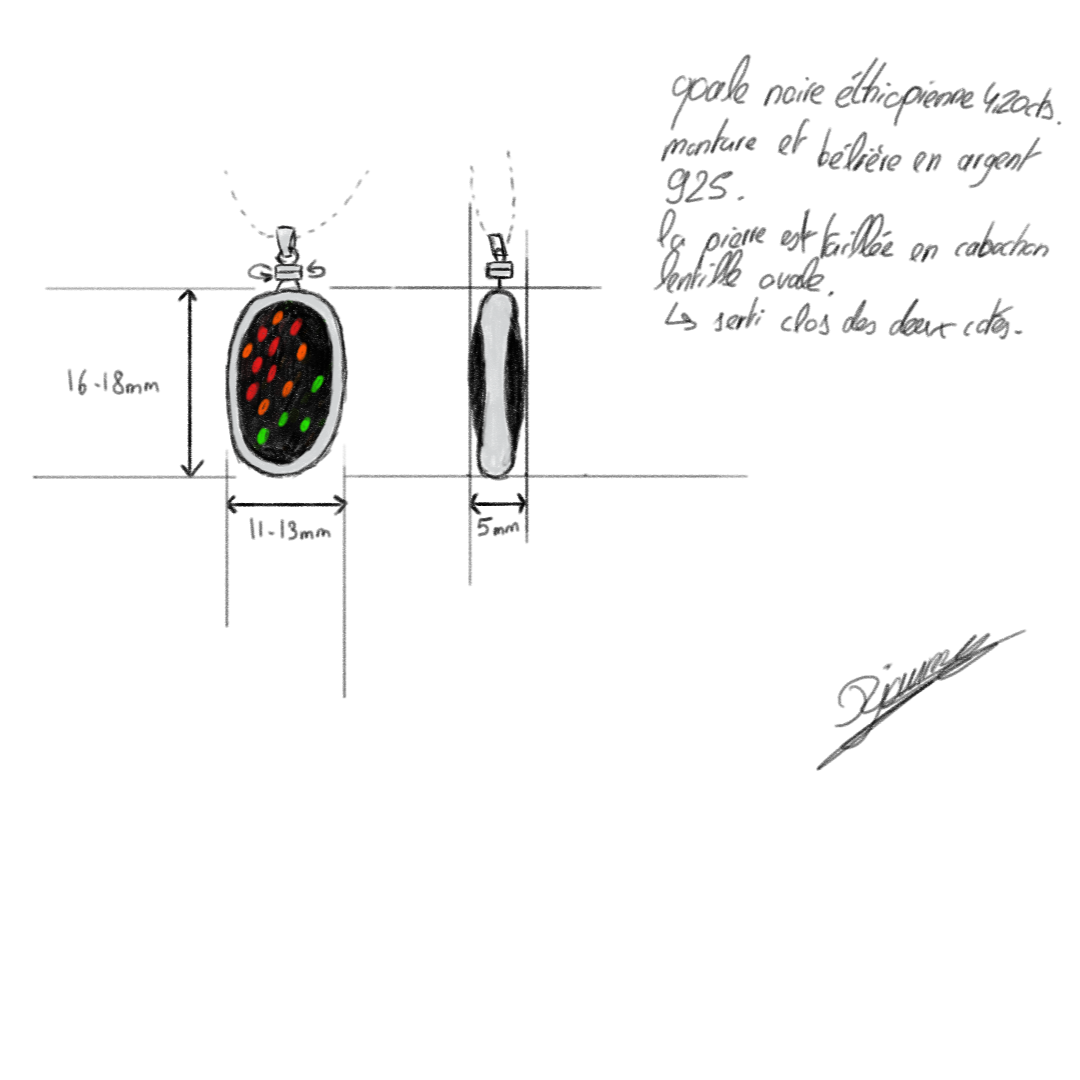 opale noire éthiopienne 4.20cts.
monture et bélière en argent
925.
la pierre est taillée en cabochon
lentille ovale.
↳ serti clos des deux cotés.
16-18mm
11-13mm
5mm